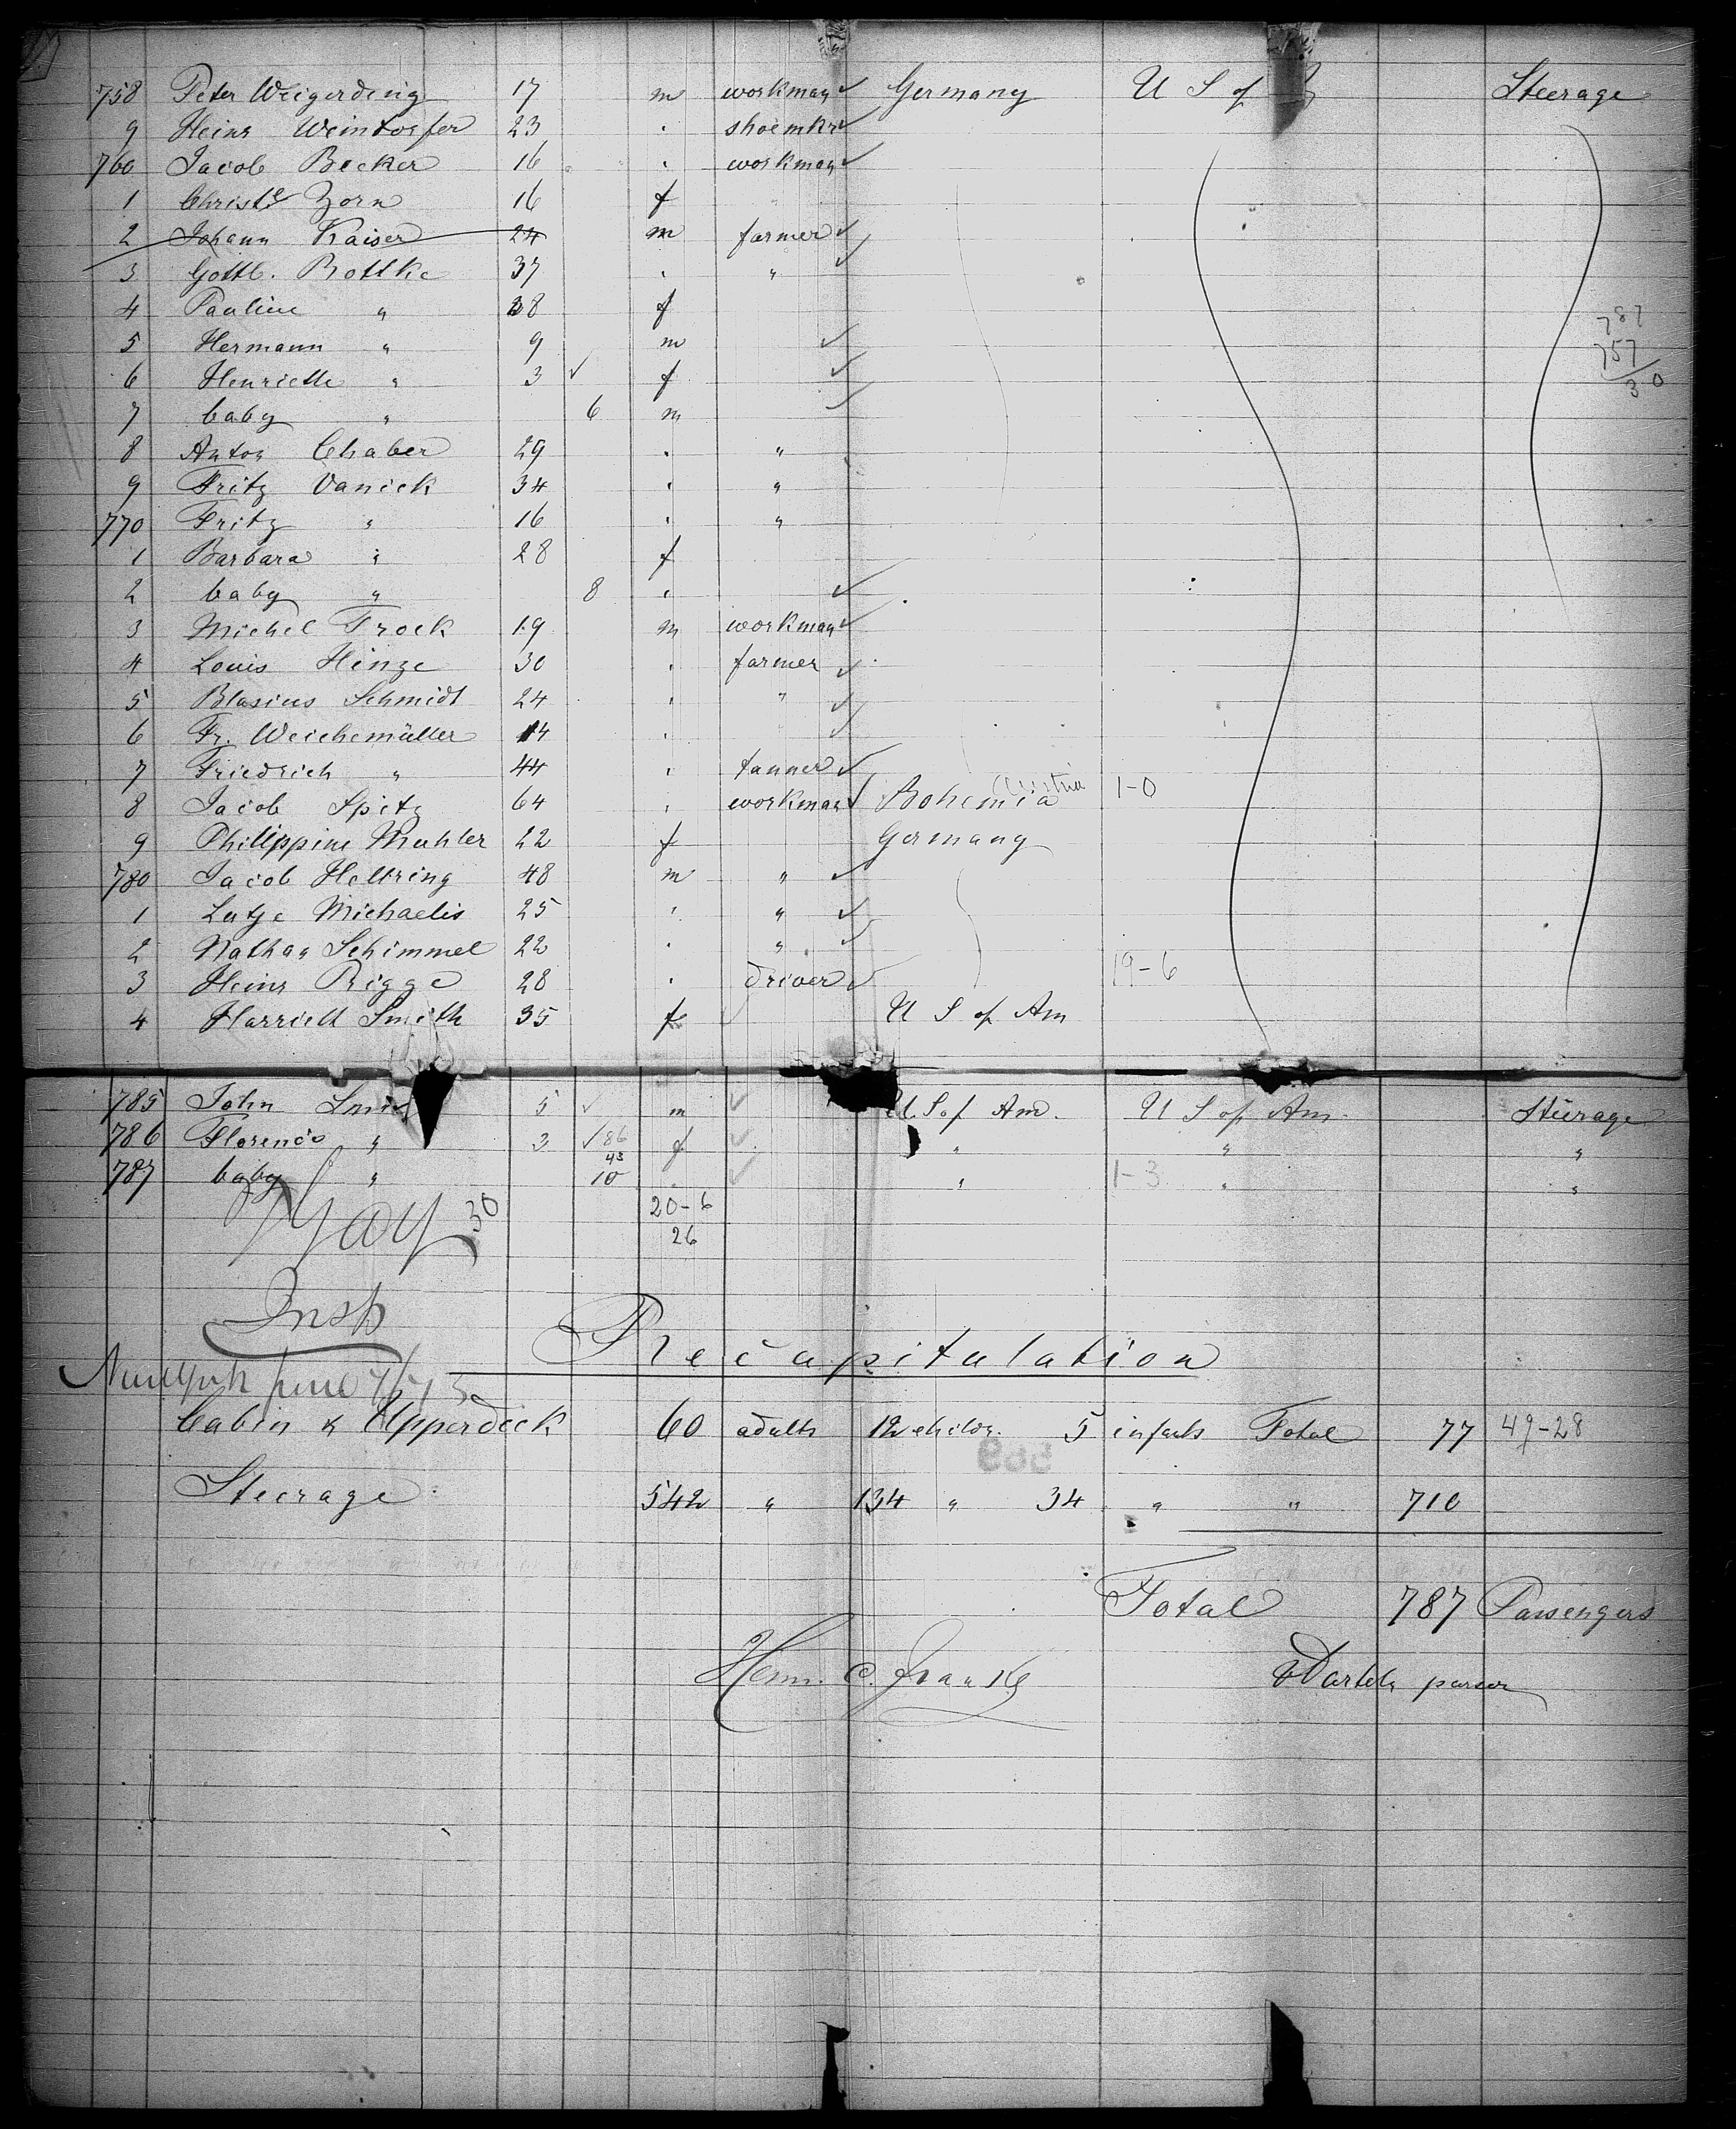 758 Peter Weigerding 17 m workman Germany U S of Steerage
9 Heinr Weintorfer 23 " shoemkr
760 Jacob Becker 16 " workman
1 Christe Zorn 16 f
2 Johann Kaiser 24 m farmer
3 Gottl. Rottke 37 " "
4 Pauline " 28 f
787
5 Hermann " 9 m
757
6 Henriette " 3 f
30
7 baby " 6 m
8 Anton Chaber 29 " "
9 Fritz Vanick 34 " "
770 Fritz " 16 " "
1 Barbara " 28 f
2 baby " 8 "
3 Michel Trock 19 m workman
4 Louis Hinze 30 " farmer
5 Blasius Schmidt 24 " "
6 Fr. Weichemüller 14 "
7 Friedrich " 44 " tanner
8 Jacob Spitz 64 " workman Bohemia Austria 1-0
9 Philippine Muhler 22 f Germany
780 Jacob Hellring 48 m "
1 Lutje Michaelis 25 " "
2 Nathan Schimmel 22 " "
3 Heinr Rigge 28 " driver 19-6
4 Harriett Smith 35 f U S of Am
785 John Smi 5 m U S of Am. U S of Am. Steerage
786 Florence " 3 86 f " " "
43
787 baby " 10 " " 1-3 " "
30 20-6
26
Insp
New York June 4/73
Recapitulation
Cabin & Upperdeck 60 adults 12 childr. 5 infants Total 77 49-28
Steerage 542 " 134 " 34 " " 710
Total 787 Passengers
Herm. C. Franke purser